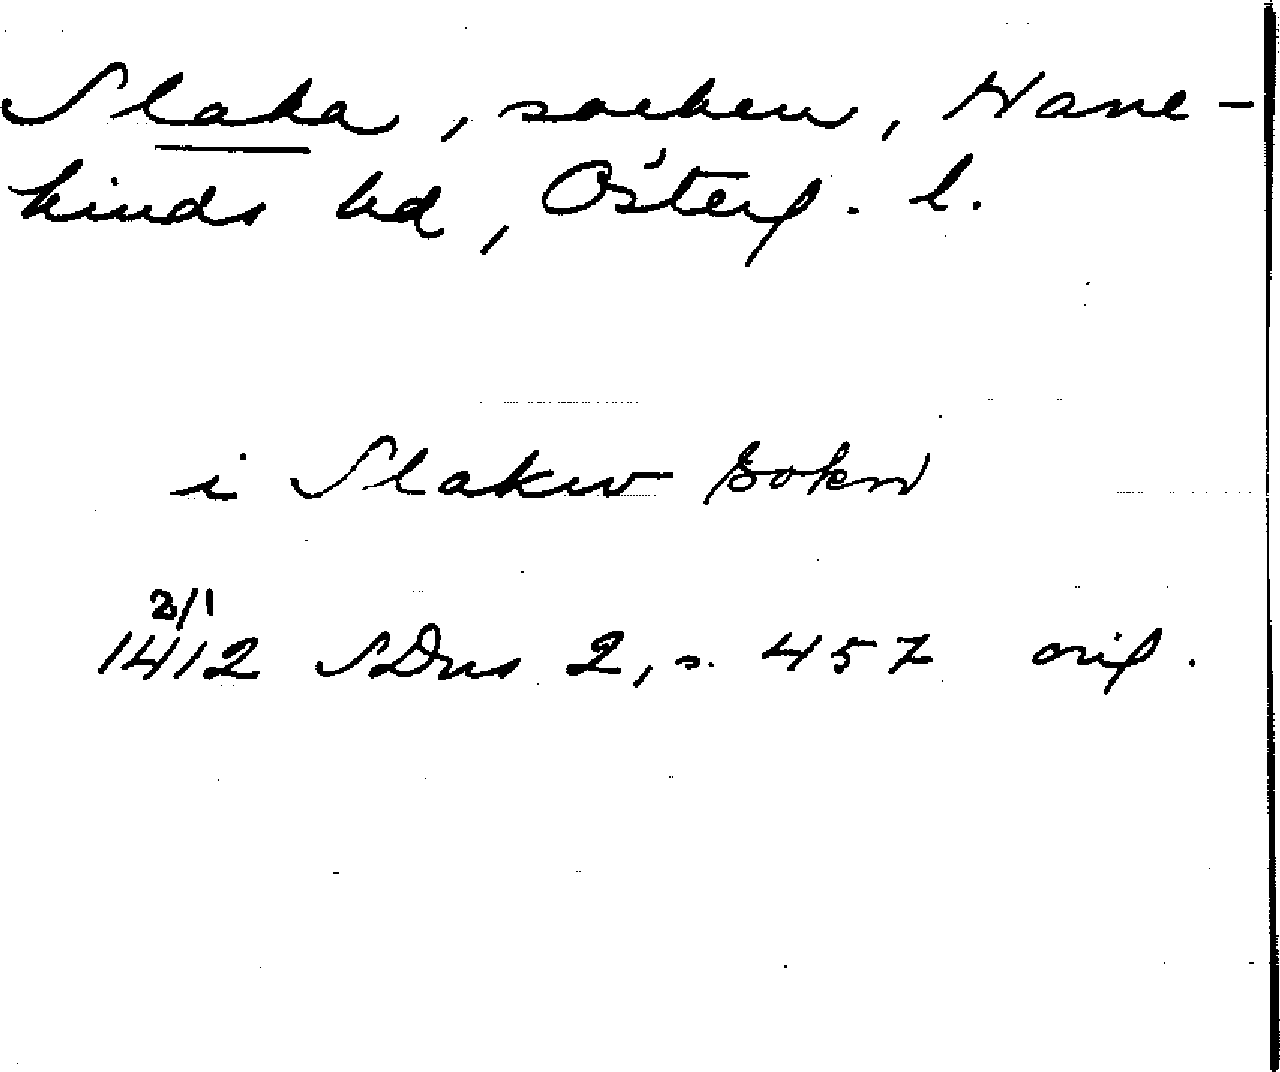 Slaka, socken, Hane-
kinds hd, Österg. l.
i Slakw Sokn
2/1
1412 SDns 2, s. 457 orig.